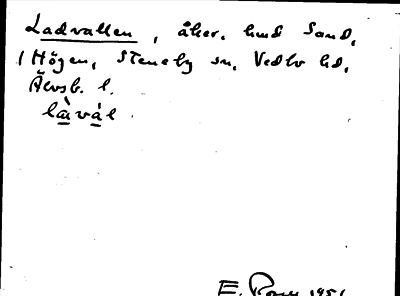 Ladvallen, åker. hmd Sand,
1 Högen, Steneby sn, Vedbo hd,
Älvsb. l.
là̱vá̱l.
E. 1951